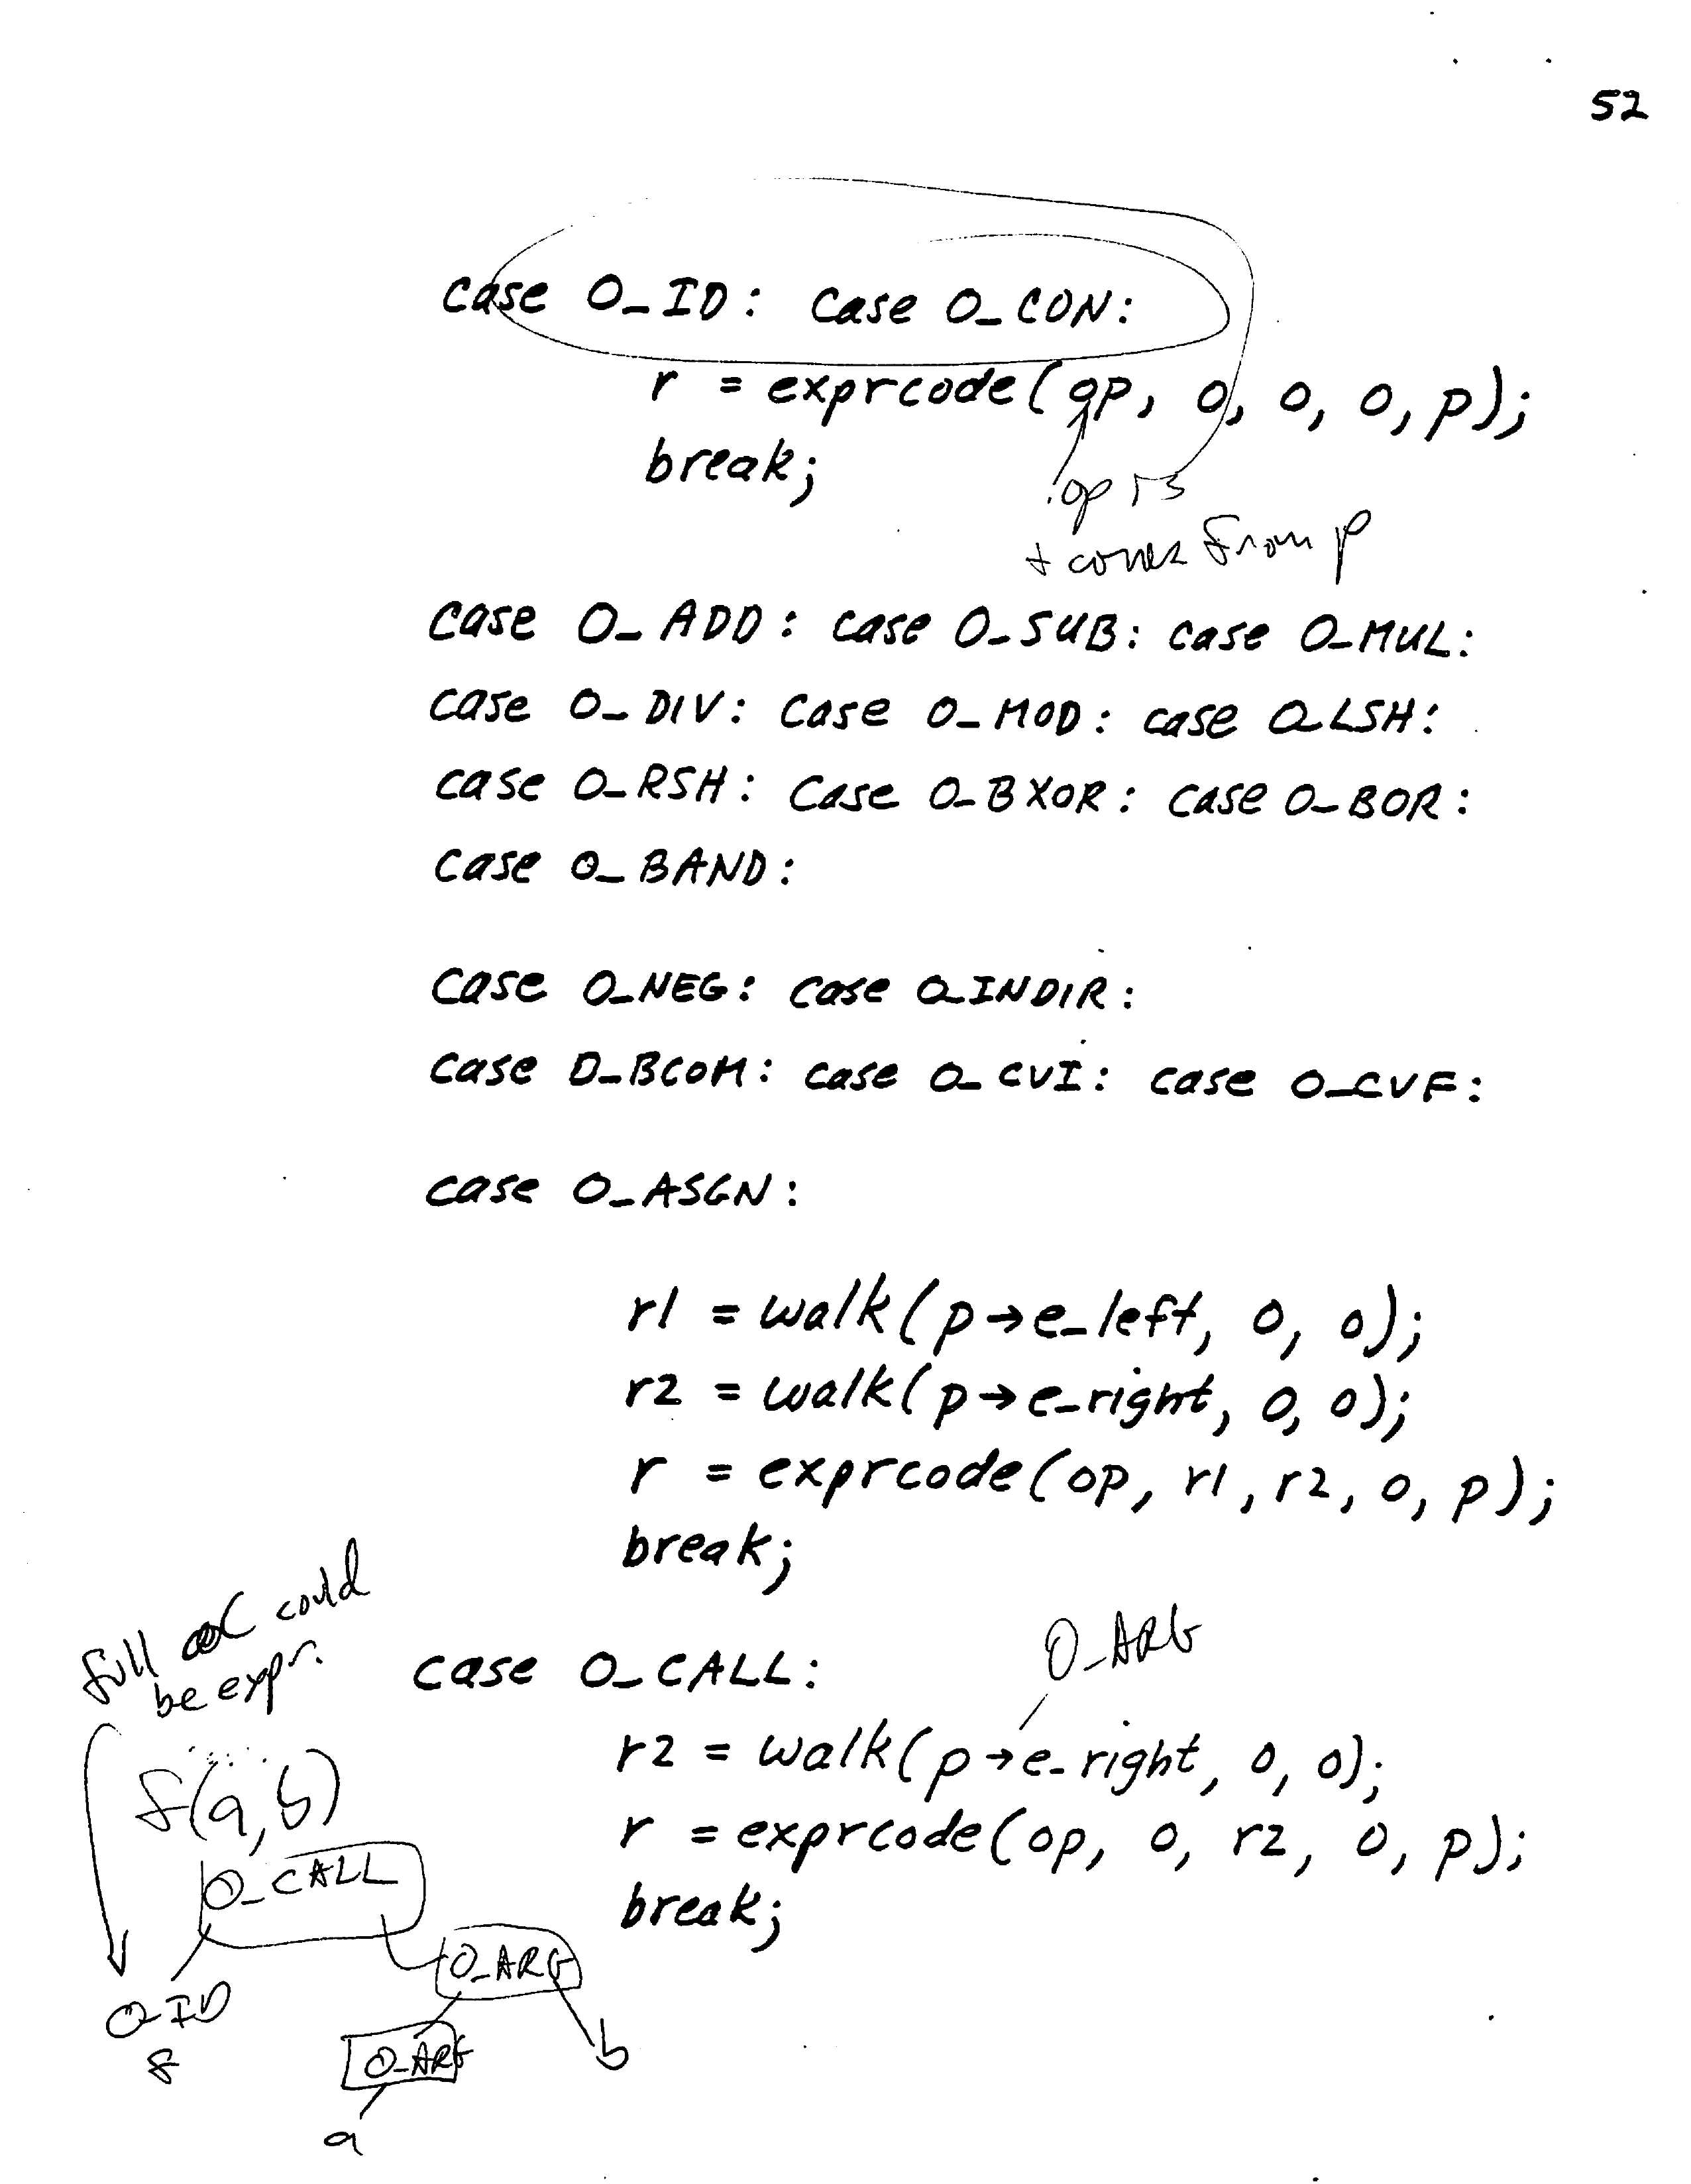 52
case O_ID: case O_CON:
r = exprcode(op, 0, 0, 0, p);
break;
op is
+ comes from p
case O_ADD: case O_SUB: case O_MUL:
case O_DIV: case O_MOD: case O_LSH:
case O_RSH: case O_BXOR: case O_BOR:
case O_BAND:
case O_NEG: case O_INDIR:
case O_BCOM: case O_CVI: case O_CVF:
case O_ASGN:
r1 = walk(p→e_left, 0, 0);
r2 = walk(p→e_right, 0, 0);
r = exprcode(op, r1, r2, 0, p);
break;
full C could
be expr.
O_ARG
case O_CALL:
r2 = walk(p→e_right, 0, 0);
r = exprcode(op, 0, r2, 0, p);
break;
f(a,b)
O_CALL
O_ARG
O_ID
f
O_ARG
b
a